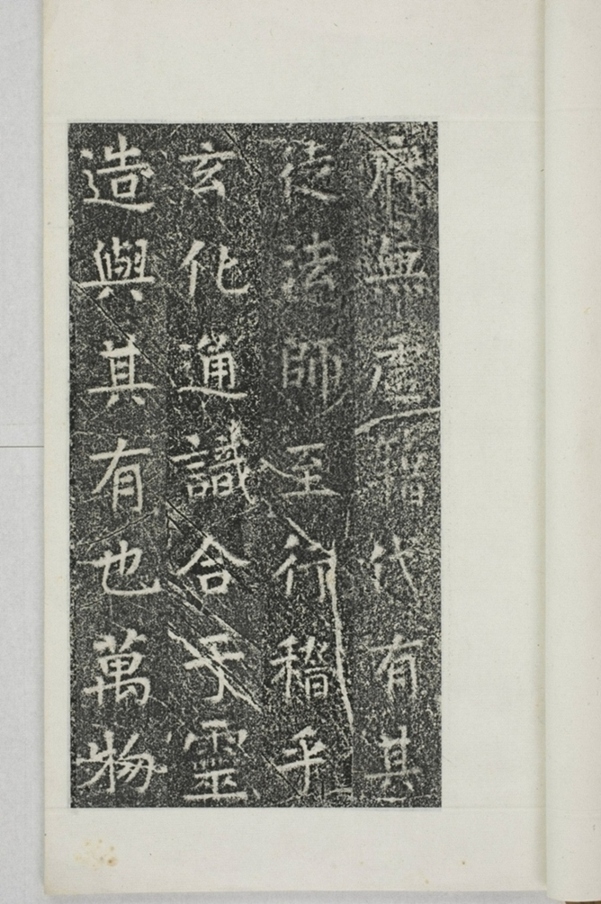 無虛代有其
徒法師至行稽乎
玄化通識合于靈
造與其有也萬物